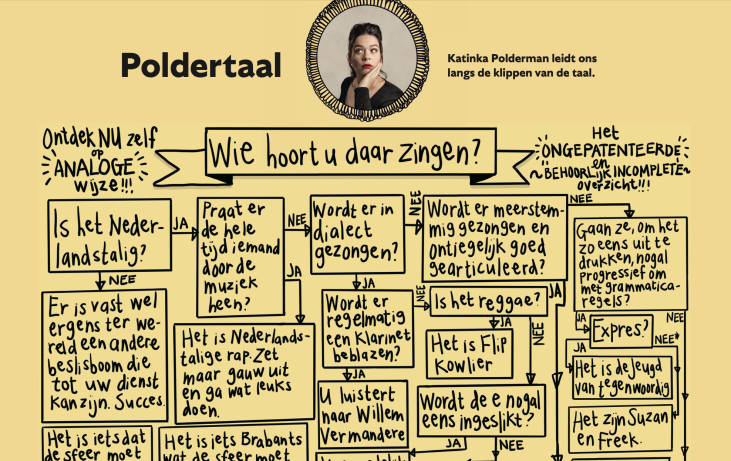 Poldertaal
Katinka Polderman leidt ons
langs de klippen van de taal.
Ontdek NU zelf
op
ANALOGE
wijze!!!
Wie hoort u daar zingen?
Het
ONGEPATENTEERDE
en
~BEHOORLIJK INCOMPLETE~
overzicht!!!
Is het Neder-
landstalig?
JA
NEE
Praat er
de hele
tijd iemand
door de
muziek
heen?
NEE
JA
Wordt er in
dialect
gezongen?
NEE
JA
Wordt er meerstem-
mig gezongen en
ontiegelijk goed
gearticuleerd?
NEE
JA
Gaan ze, om het
zo eens uit te
drukken, nogal
progressief om
met grammatica-
regels?
JA
NEE
Er is vast wel
ergens ter we-
reld een andere
beslisboom die
tot uw dienst
kan zijn. Succes.
Het is Nederlands-
talige rap. Zet
maar gauw uit
en ga wat leuks
doen.
Wordt er
regelmatig
een klarinet
beblazen?
NEE
JA
Is het reggae?
JA
NEE
Het is Flip
Kowlier
Expres?
NEE
JA
Het is de Jeugd
van tegenwoordig
Het zijn Suzan
en Freek.
U luistert
naar Willem
Vermandere
Wordt de e nogal
eens ingeslikt?
JA
NEE
Het is iets dat
de sfeer moet
Het is iets Brabants
wat de sfeer moet